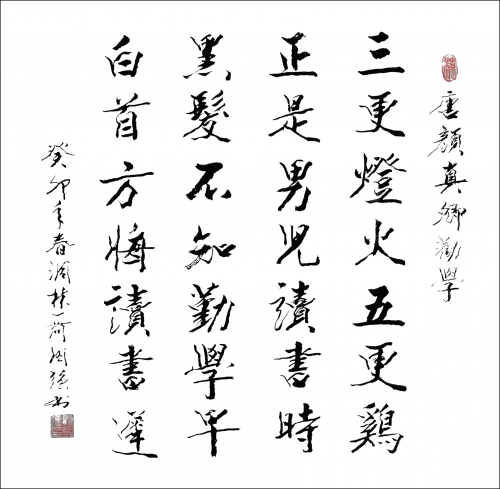 唐顏真卿勸學
三更燈火五更鷄
正是男兒讀書時
黑髮不知勤學早
白首方悔讀書遲
癸卯年春